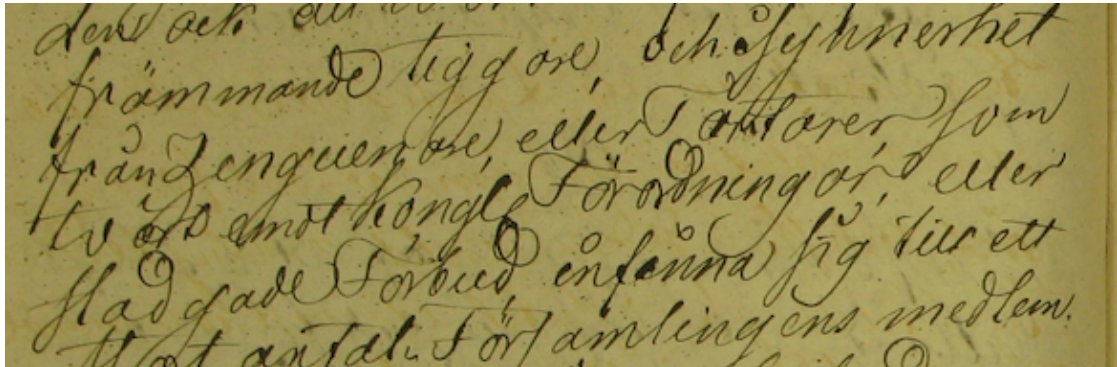 den och det
främmande tiggare, och i synnerhet
från Zenguenare, eller Tartarer, som
tvärt emot Kongl. Förordningar, eller
stadgade Förbud, infinna sig till ett
stort antal. Församlingens medlem.